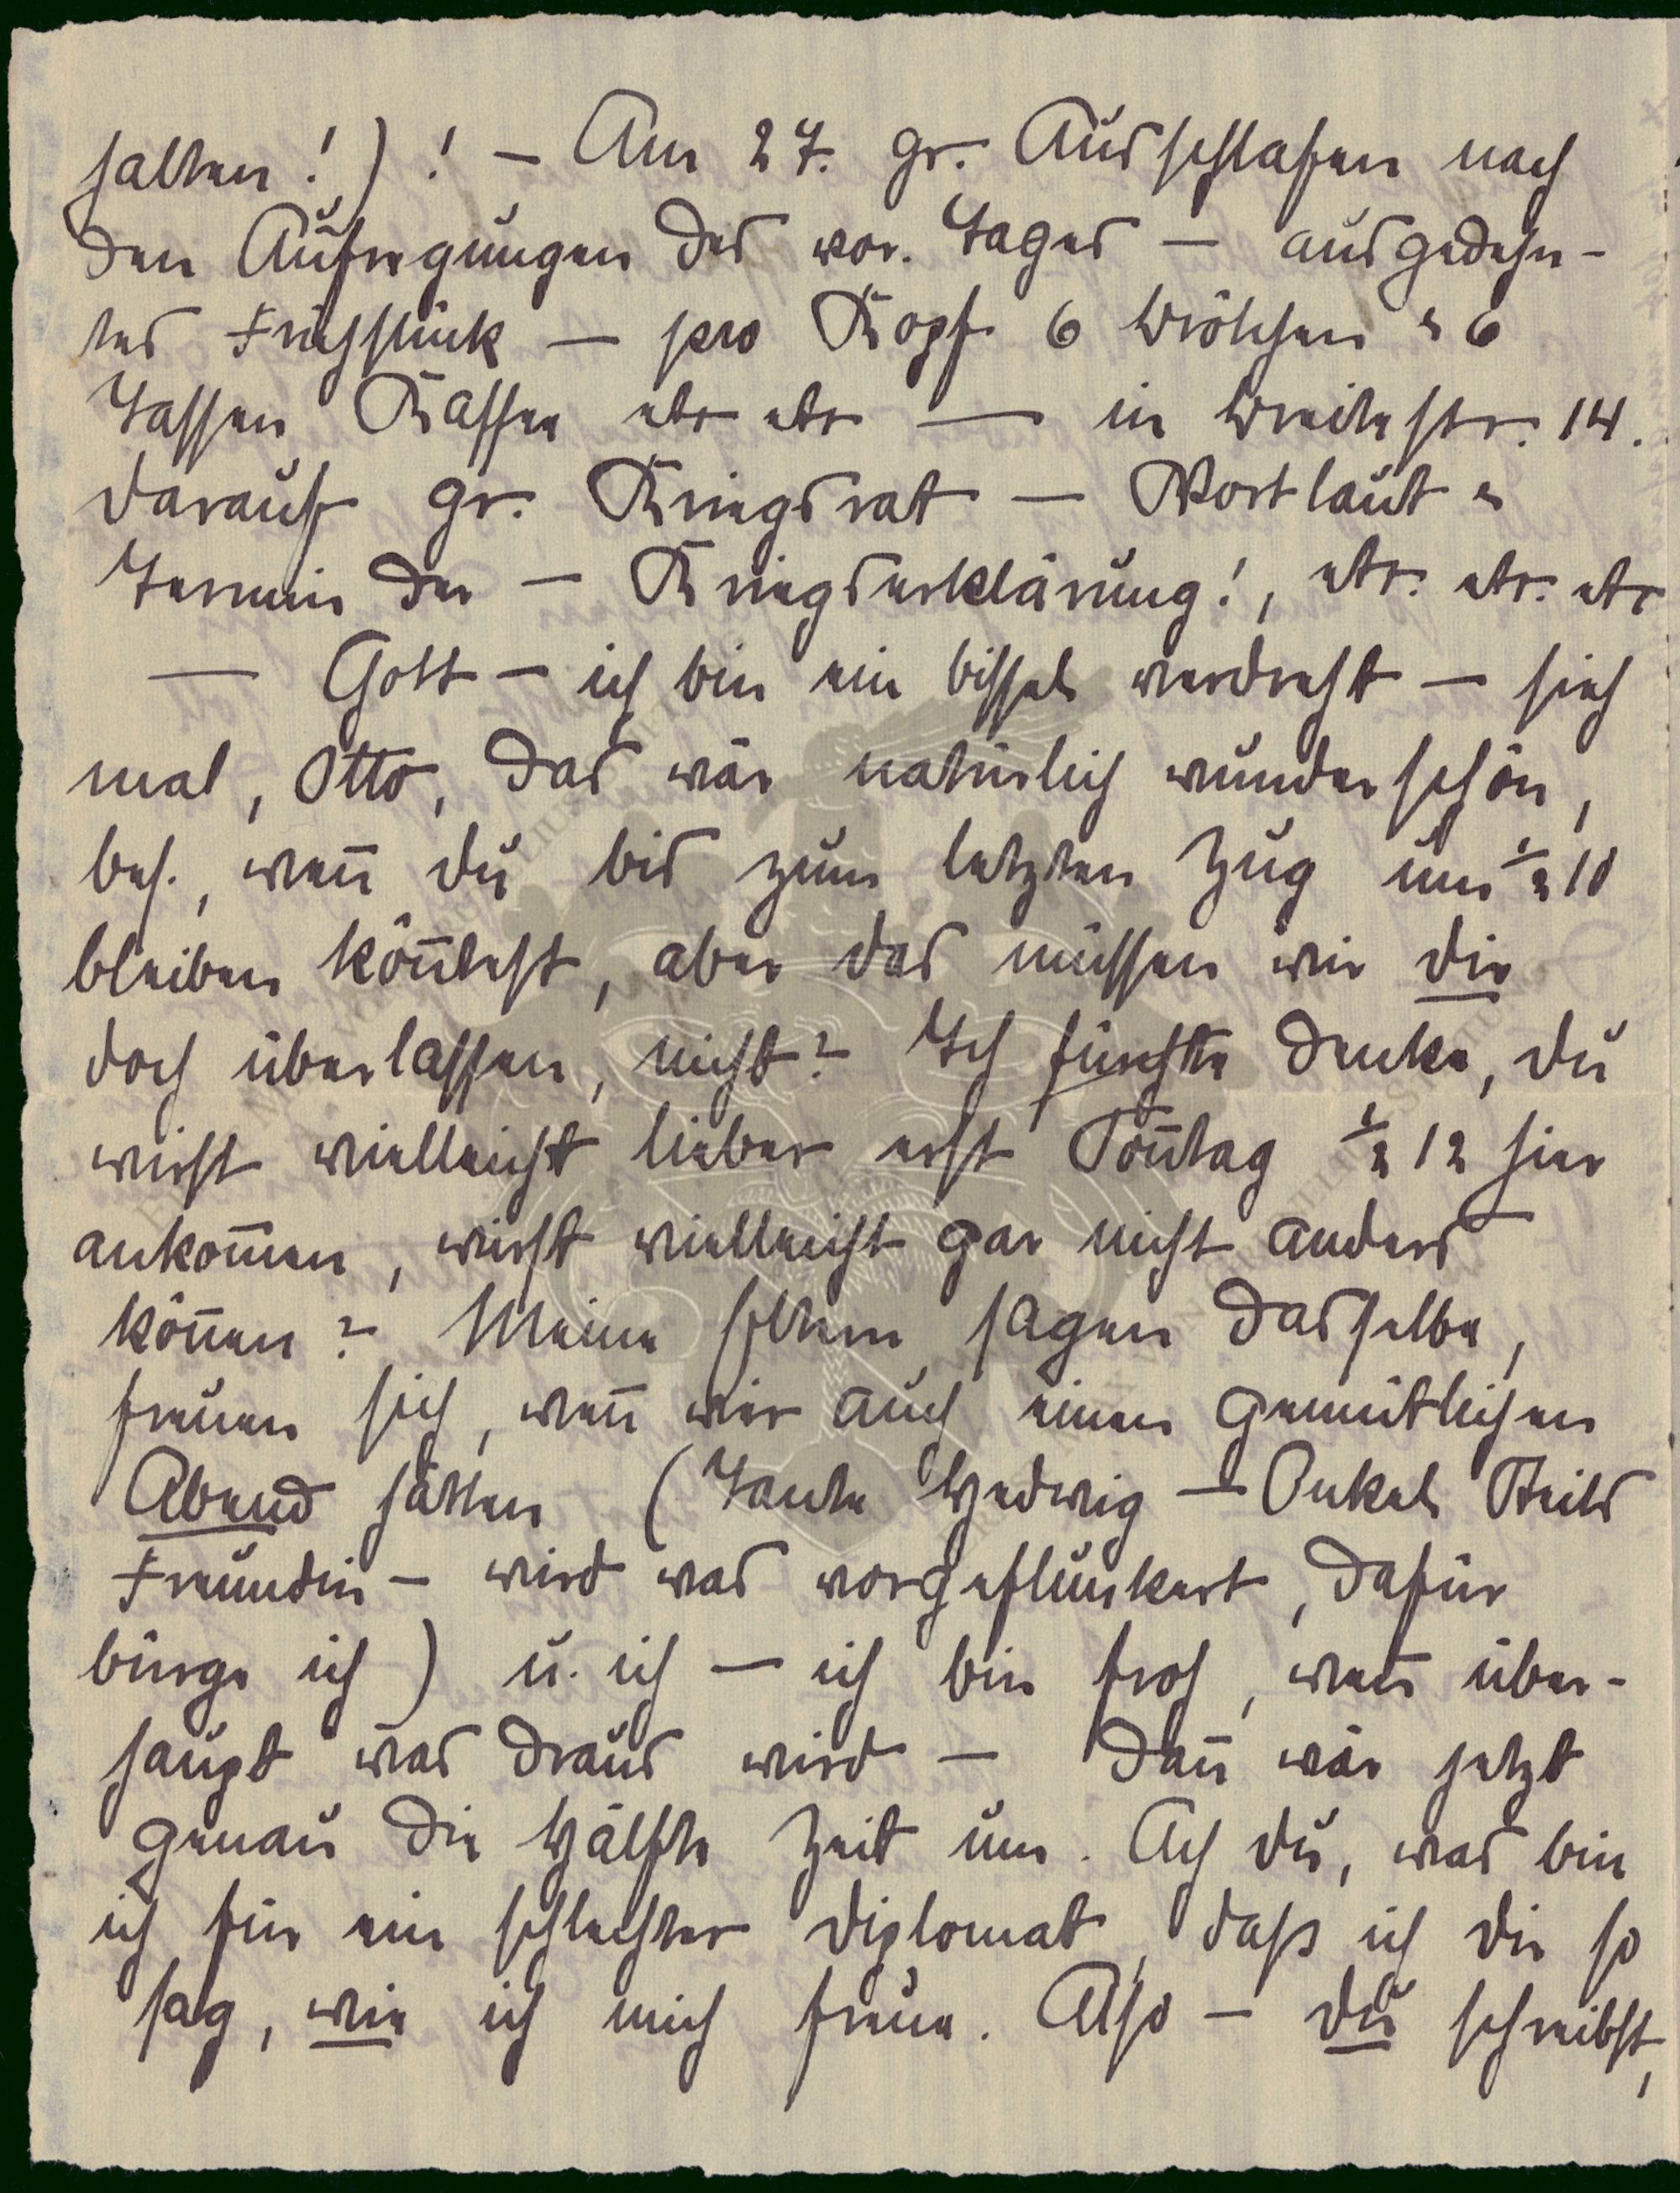 halten!)! – Am 27. gr. Ausschlafen nach
den Aufregungen des vor. Tages – ausgedehn-
tes Frühstück – pro Kopf 6 Brötchen u 6
Tassen Kaffee etc etc — in Breitestr. 14.
darauf gr. Kriegsrat – Wortlaut u
Termin der – Kriegserklärung!, etc. etc. etc
— Gott – ich bin ein bissel verdreht – sieh
mal, Otto, das wär natürlich wunderschön,
bes., wen̄ du bis zum letzten Zug um ½ 10
bleiben kön̄test, aber das müssen wir dir
doch überlassen, nicht? Ich fürchte denke, du
wirst vielleicht lieber erst Son̄tag ½ 12 hier
ankom̄en, wirst vielleicht gar nicht anders
kön̄en? Meine Eltern sagen dasselbe,
freuen sich, wen̄ wir auch einen gemütlichen
Abend hätten (Tante Hedwig – Onkel Theils
Freundin – wird was vorgeflunkert, dafür
bürge ich) u. ich – ich bin froh, wen̄ über-
haupt was draus wird – dan̄ wär jetzt
genau die Hälfte Zeit um. Ach du, was bin
ich für ein schlechter Diplomat, daß ich dir so
sag, wie ich mich freue. Also – du schreibst,